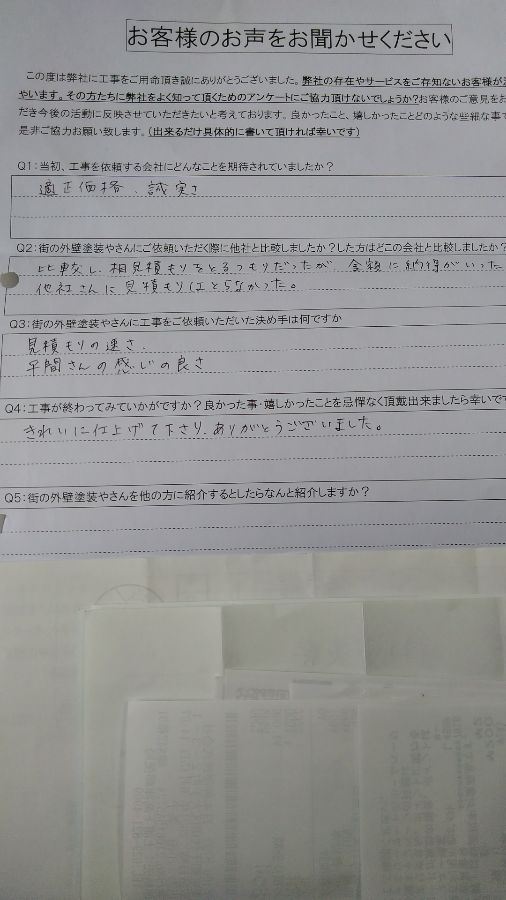 お客様のお声をお聞かせください
この度は弊社に工事をご用命頂き誠にありがとうございました。弊社の存在やサービスをご存知ないお客様が
やいます。その方たちに弊社をよく知って頂くためのアンケートにご協力頂けないでしょうか?お客様のご意見をお
だき今後の活動に反映させていただきたいと考えております。良かったこと、嬉しかったことどのような些細な事で
是非ご協力お願い致します。(出来るだけ具体的に書いて頂ければ幸いです)
Q1:当初、工事を依頼する会社にどんなことを期待されていましたか?
適正価格、誠実さ
Q2:街の外壁塗装やさんにご依頼いただく際に他社と比較しましたか?した方はどこの会社と比較しましたか?
比較し、相見積もりをとるつもりだったが、金額に納得がいった
他社さんに見積もりはとらなかった。
Q3:街の外壁塗装やさんに工事をご依頼いただいた決め手は何ですか
見積もりの速さ、
平間さんの感じの良さ
Q4:工事が終わってみていかがですか?良かった事・嬉しかったことを忌憚なく頂戴出来ましたら幸いです
きれいに仕上げて下さり、ありがとうございました。
Q5:街の外壁塗装やさんを他の方に紹介するとしたらなんと紹介しますか?